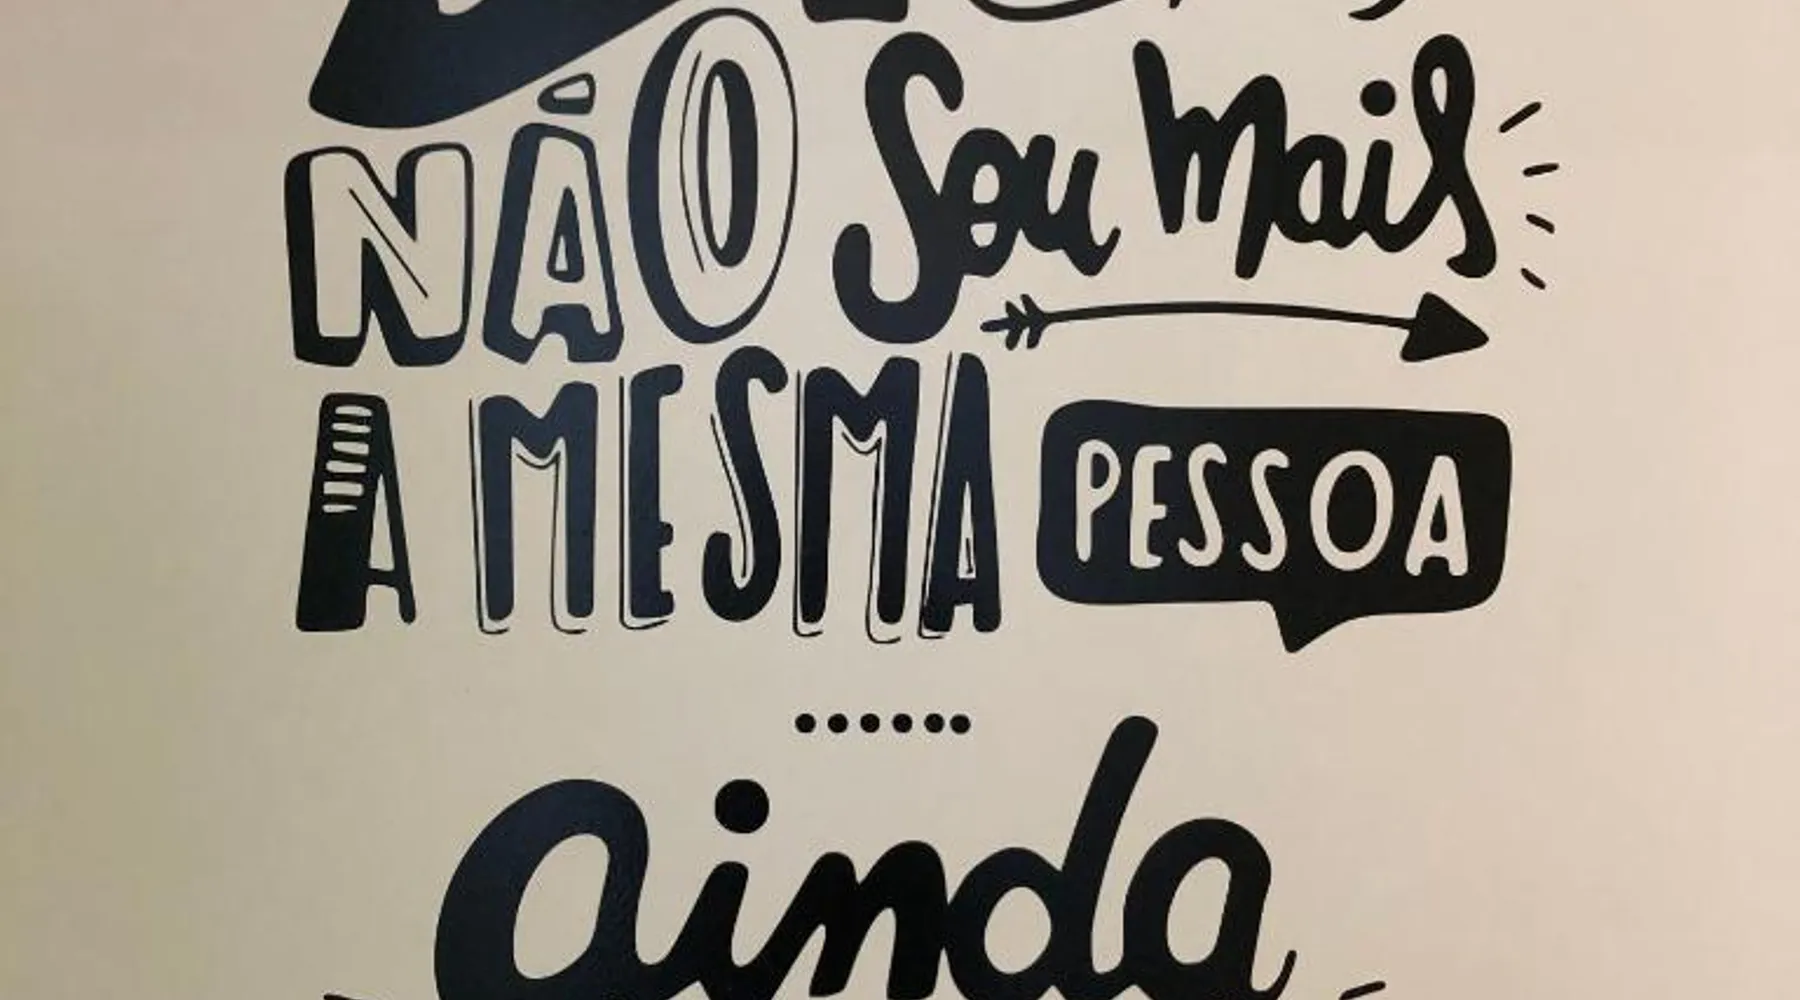 NÃO Sou mais
A MESMA PESSOA
ainda